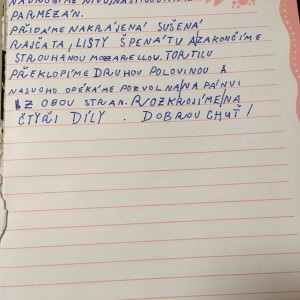 PARMEZÁN.
PŘIDÁME NAKRÁJENÁ SUŠENÁ
RAJČATA, LISTY ŠPENÁTU A ZAKONČÍME
STROUHANOU MOZZARELLOU. TORTILU
PŘEKLOPÍME DRUHOU POLOVINOU A
NASUCHO OPÉKÁME POZVOLNA/NA PÁNVI
Z OBOU STRAN. ROZKROJÍME/NA
ČTYŘI DÍLY. DOBROU CHUŤ!